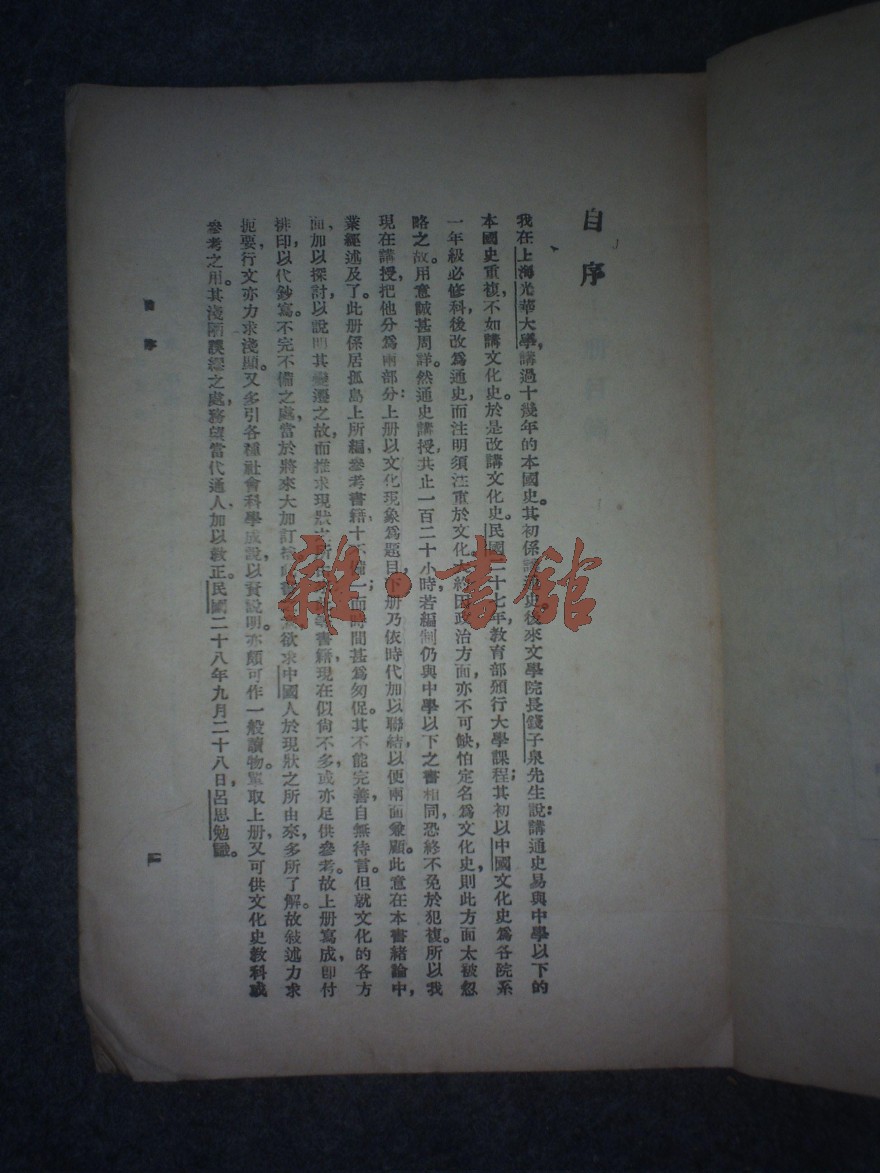 自序
我在上海光華大學，講過十幾年的本國史。其初係講通史。後來文學院長錢子泉先生說：講通史易與中學以下的
本國史重複，不如講文化史。於是改講文化史。民國二十七年，教育部頒行大學課程；其初以中國文化史為各院系
一年級必修科，後改為通史，而注明須注重於文化。大約因政治方面，亦不可缺，怕定名為文化史，則此方面太被忽
略之故。用意誠甚周詳。然通史講授，共止一百二十小時，若編制仍與中學以下之書相同，恐終不免於犯複。所以我
現在講授，把他分為兩部分：上册以文化現象為題目，下册乃依時代加以聯結，以便兩面兼顧。此意在本書緒論中，
業經述及了。此册係居孤島上所編，參考書籍，十不備一；而時間甚為匆促。其不能完善，自無待言。但就文化的各方
面加以探討，以說明其變遷之故，而推求現狀之所由來；此等書籍，現在似尚不多，或亦足供參考。故上册寫成，即付
排印，以代鈔寫。不完不備之處，當於將來大加訂補。此書之意，欲求中國人於現狀之所由來，多所了解。故敍述力求
扼要，行文亦力求淺顯。又多引各種社會科學成說，以資說明。亦頗可作一般讀物；單取上册，又可供文化史教科或
參考之用。其淺陋誤繆之處，務望當代通人，加以教正。民國二十八年九月二十八日，呂思勉識。
自序
一
雜·書館